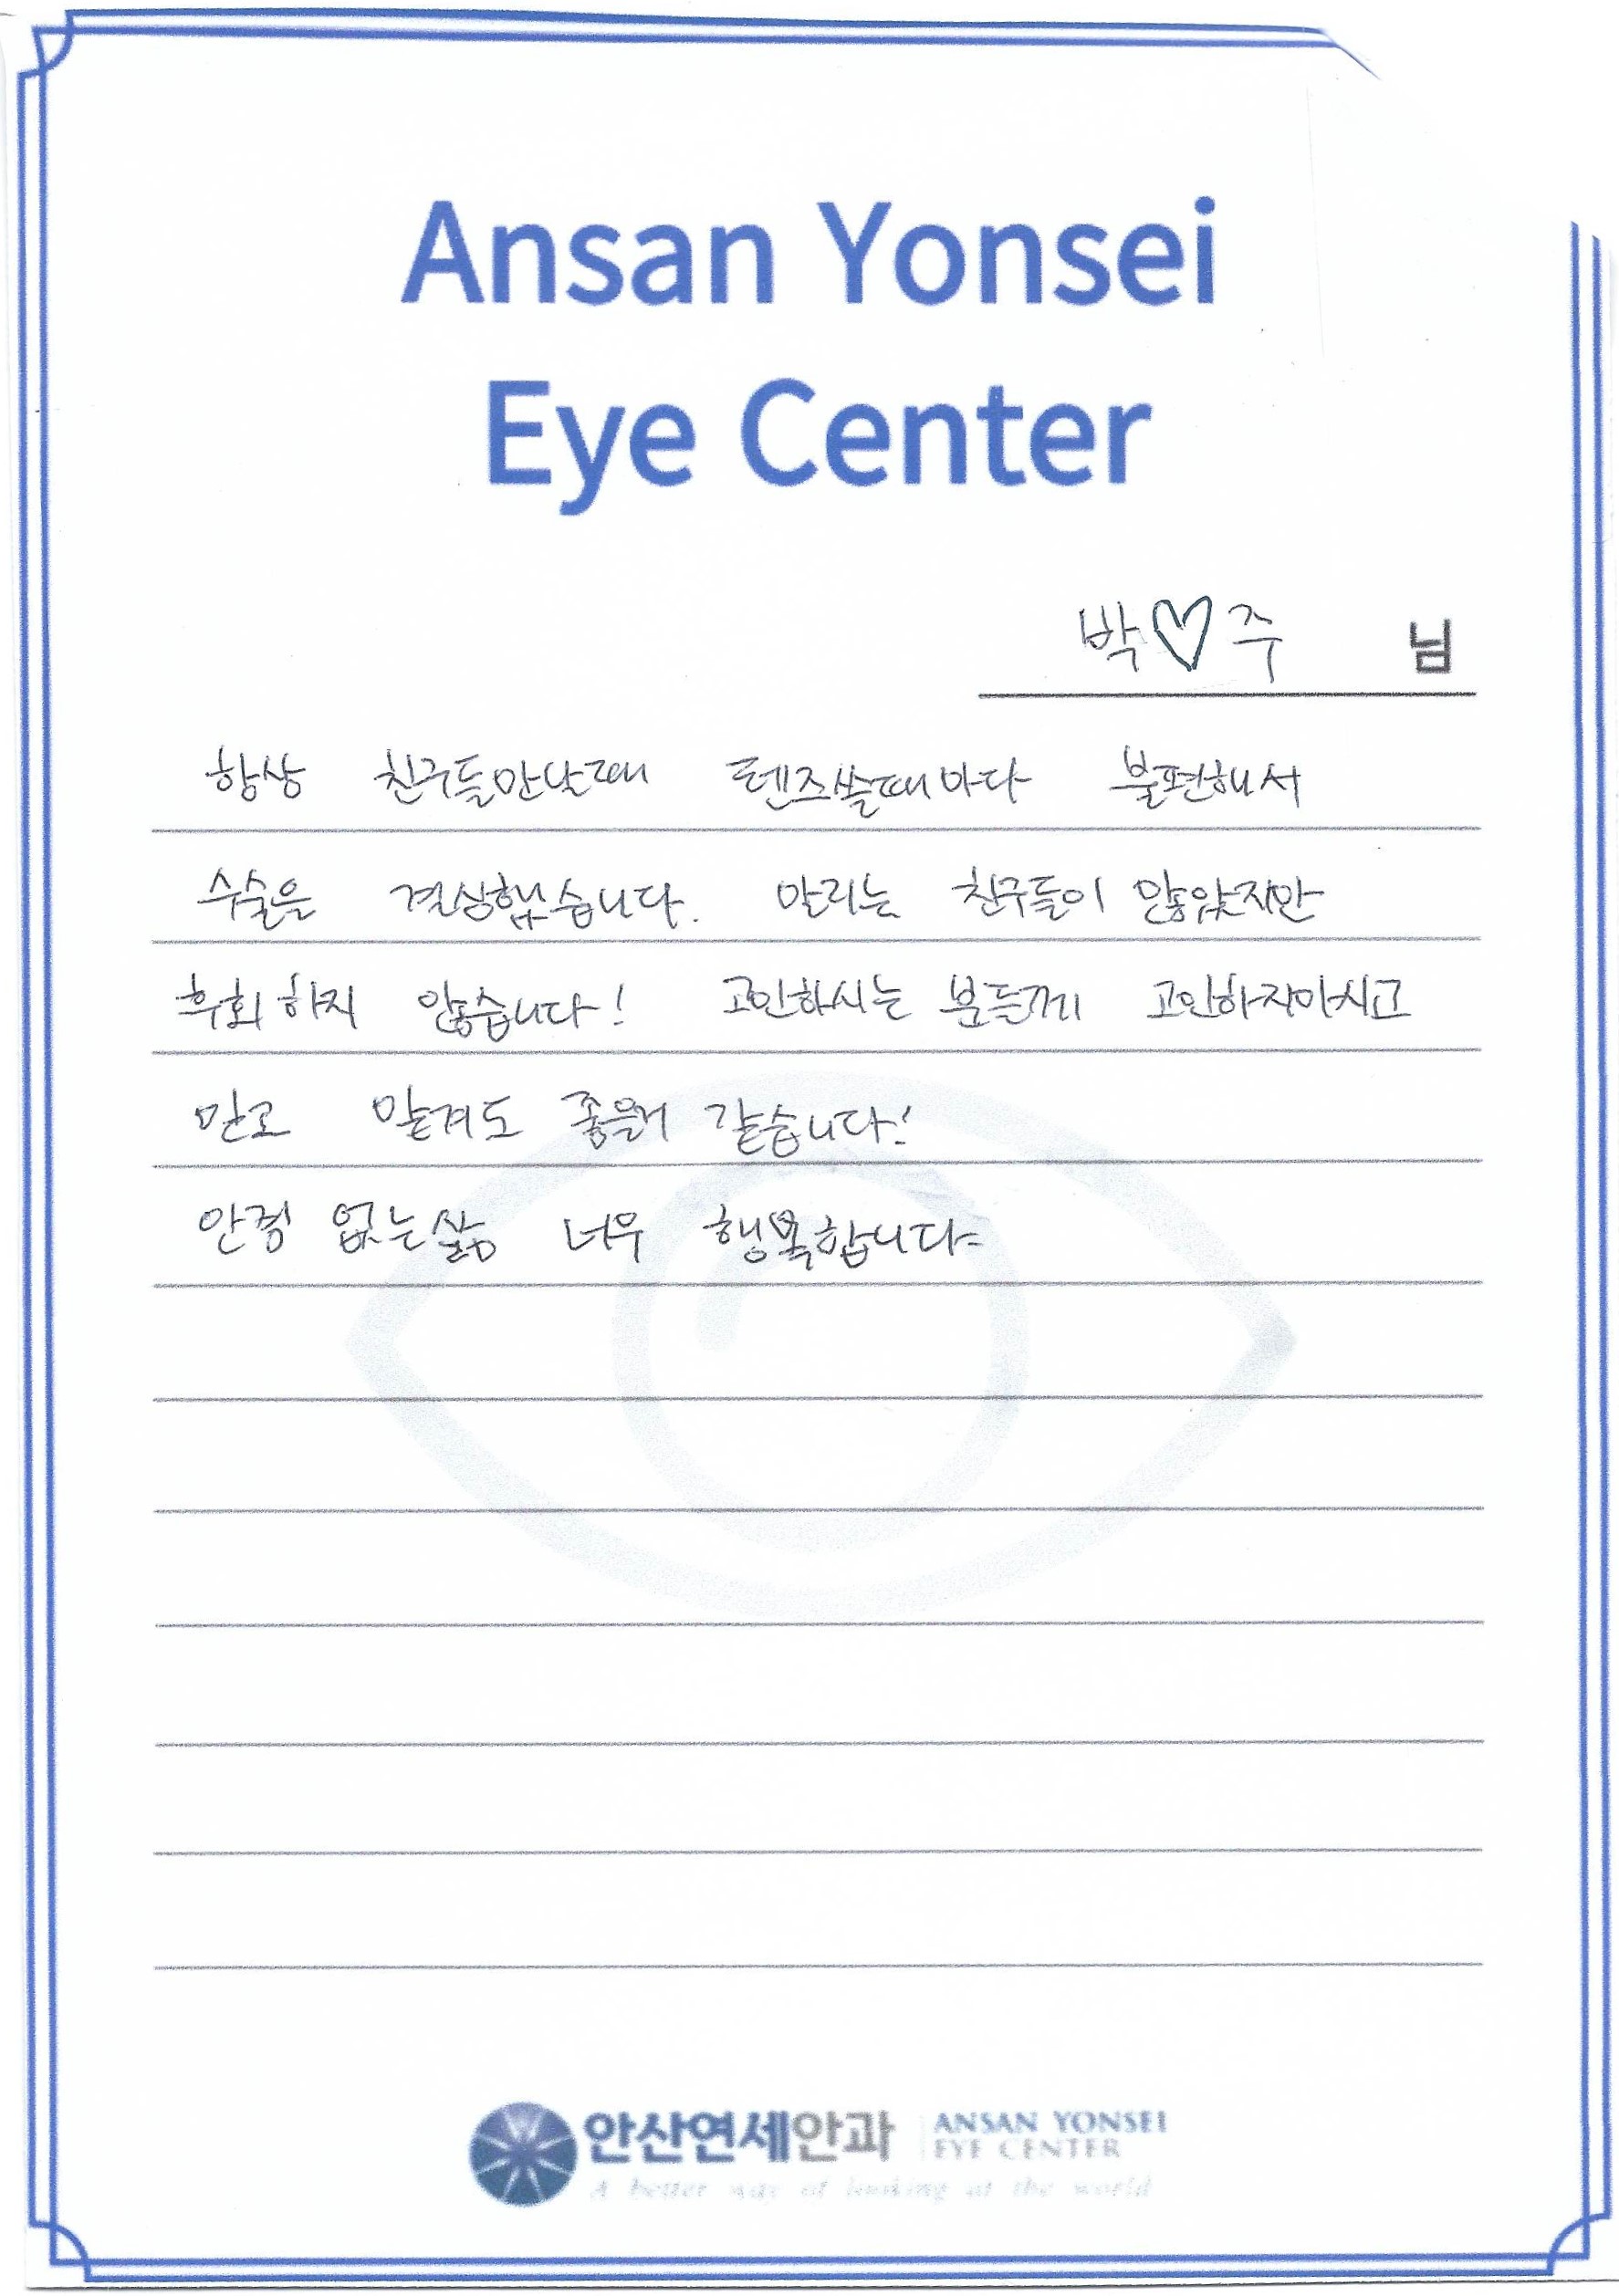 Ansan Yonsei
Eye Center
박♡주 님
항상 친구들만날때 렌즈쓸때마다 불편해서
수술을 결심했습니다. 말리는 친구들이 많았지만
후회하지 않습니다! 고민하시는 분들께 고민하지마시고
믿고 맡겨도 좋을거 같습니다!
안경 없는삶 너무 행복합니다
안산연세안과 ANSAN YONSEI
EYE CENTER
A better way of looking at the world